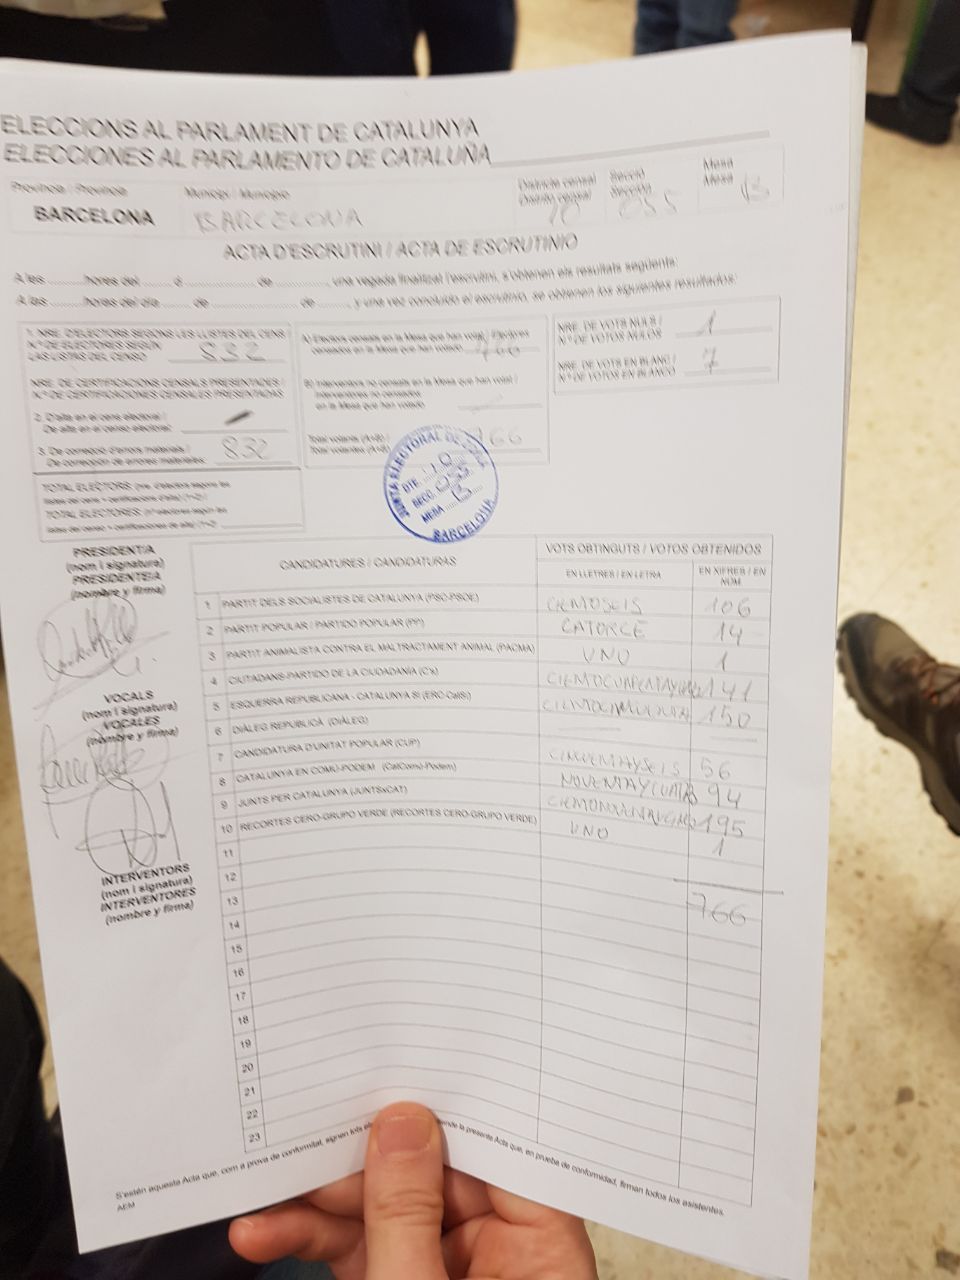 ELECCIONS AL PARLAMENT DE CATALUNYA
ELECCIONES AL PARLAMENTO DE CATALUÑA
Província / Provincia
BARCELONA
Municipi / Municipio
BARCELONA
Districte censal
Distrito censal
10
Secció
Sección
055
Mesa
Mesa
B
ACTA D'ESCRUTINI / ACTA DE ESCRUTINIO
A les ........... hores del ....... d ........................ de ................, una vegada finalitzat l'escrutini, s'obtenen els resultats següents:
A las ........... horas del día ....... de ........................ de ..........., y una vez concluido el escrutinio, se obtienen los siguientes resultados:
1. NRE. D'ELECTORS SEGONS LES LLISTES DEL CENS /
N.º DE ELECTORES SEGÚN
LAS LISTAS DEL CENSO 832
NRE. DE CERTIFICACIONS CENSALS PRESENTADES /
N.º DE CERTIFICACIONES CENSALES PRESENTADAS
2. D'alta en el cens electoral /
De alta en el censo electoral:
3. De correcció d'errors materials /
De corrección de errores materiales: 832
TOTAL ELECTORS: (nre. d'electors segons les
llistes del cens + certificacions d'alta) (1+2) /
TOTAL ELECTORES: (n.º electores según las
listas del censo + certificaciones de alta) (1+2)
A) Electors censats en la Mesa que han votat / Electores
censados en la Mesa que han votado 766
B) Interventors no censats en la Mesa que han votat /
Interventores no censados
en la Mesa que han votado
Total votants (A+B) /
Total votantes (A+B) 766
NRE. DE VOTS NULS /
N.º DE VOTOS NULOS 1
NRE. DE VOTS EN BLANC /
N.º DE VOTOS EN BLANCO 7
JUNTA ELECTORAL DE ZONA
DTE. 10
SECC. 055
MESA B
BARCELONA
PRESIDENT/A
(nom i signatura)
PRESIDENTE/A
(nombre y firma)
VOCALS
(nom i signatura)
VOCALES
(nombre y firma)
INTERVENTORS
(nom i signatura)
INTERVENTORES
(nombre y firma)
CANDIDATURES / CANDIDATURAS
VOTS OBTINGUTS / VOTOS OBTENIDOS
EN LLETRES / EN LETRA
EN XIFRES / EN NÚM.
1 PARTIT DELS SOCIALISTES DE CATALUNYA (PSC-PSOE) CIENTOSEIS 106
2 PARTIT POPULAR / PARTIDO POPULAR (PP) CATORCE 14
3 PARTIT ANIMALISTA CONTRA EL MALTRACTAMENT ANIMAL (PACMA) UNO 1
4 CIUTADANS-PARTIDO DE LA CIUDADANÍA (C's) 141
5 ESQUERRA REPUBLICANA - CATALUNYA SÍ (ERC-CatSí) 150
6 DIÀLEG REPUBLICÀ (DIÀLEG)
7 CANDIDATURA D'UNITAT POPULAR (CUP) 56
8 CATALUNYA EN COMÚ-PODEM (CatComú-Podem) 94
9 JUNTS PER CATALUNYA (JUNTSxCAT) 195
10 RECORTES CERO-GRUPO VERDE (RECORTES CERO-GRUPO VERDE) UNO 1
11
12
13 766
14
15
16
17
18
19
20
21
22
23
S'estén aquesta Acta que, com a prova de conformitat, signen tots els
ende la presente Acta que, en prueba de conformidad, firman todos los asistentes.
AEM